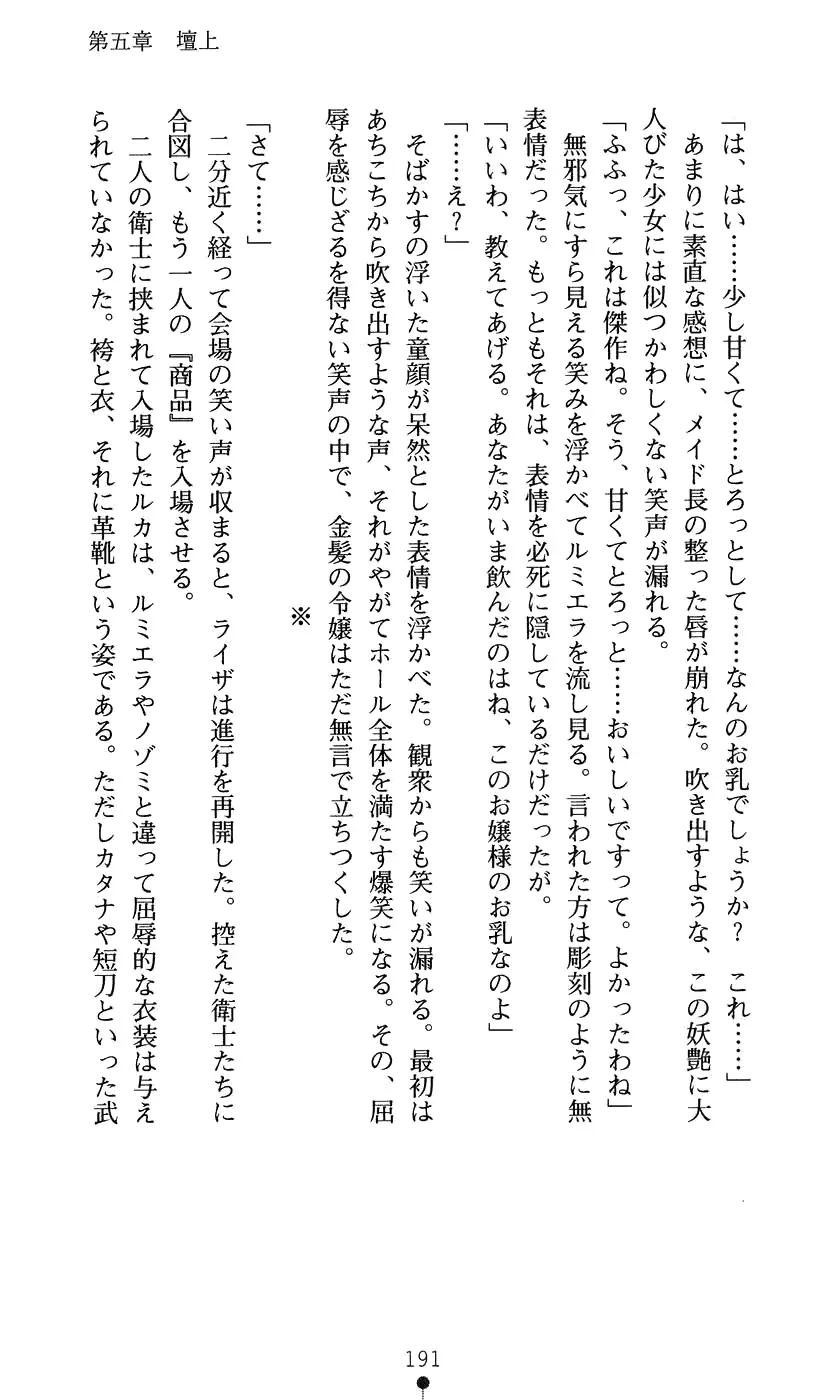 第五章　壇上
「は、はい……少し甘くて……とろっとして……なんのお乳でしょうか？　これ……」
　あまりに素直な感想に、メイド長の整った唇が崩れた。吹き出すような、この妖艶に大
人びた少女には似つかわしくない笑声が漏れる。
「ふふっ、これは傑作ね。そう、甘くてとろっと……おいしいですって。よかったわね」
　無邪気にすら見える笑みを浮かべてルミエラを流し見る。言われた方は彫刻のように無
表情だった。もっともそれは、表情を必死に隠しているだけだったが。
「いいわ、教えてあげる。あなたがいま飲んだのはね、このお嬢様のお乳なのよ」
「……え？」
　そばかすの浮いた童顔が呆然とした表情を浮かべた。観衆からも笑いが漏れる。最初は
あちこちから吹き出すような声、それがやがてホール全体を満たす爆笑になる。その、屈
辱を感じざるを得ない笑声の中で、金髪の令嬢はただ無言で立ちつくした。
※
「さて……」
　二分近く経って会場の笑い声が収まると、ライザは進行を再開した。控えた衛士たちに
合図し、もう一人の『商品』を入場させる。
　二人の衛士に挟まれて入場したルカは、ルミエラやノゾミと違って屈辱的な衣装は与え
られていなかった。袴と衣、それに革靴という姿である。ただしカタナや短刀といった武
191